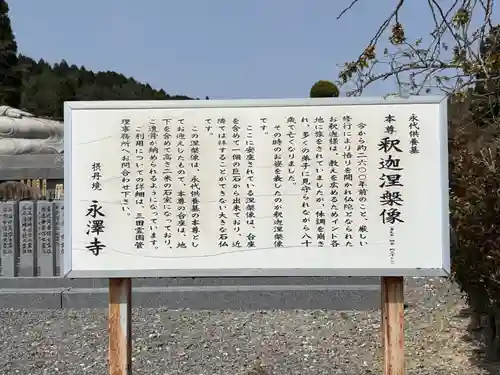 永代供養墓
本尊 釈迦涅槃像
今から約二六〇〇年前のこと、厳しい
修行により悟りを開かれ仏陀となられた
お釈迦様は、教えを広めるためインド各
地に旅をされていましたが、体調を崩さ
れ、多くの弟子に見守られながら八十
歳で亡くなりました。
その時のお姿を表したのが釈迦涅槃像
です。
ここに安座されている涅槃像は、台座
を含めて一個の巨石から出来ており、近
隣では持つことができない大きな石仏
です。
この涅槃像は、永代供養墓の本尊とし
てお迎えしたもので、本尊の台座は、地
下を含めて高さ三米の石室になっており、
ご遺骨が納められるようになっています。
ご利用についての詳細は、三田霊園管
理事務所へお問合わせ下さい。
摂丹境 永澤寺